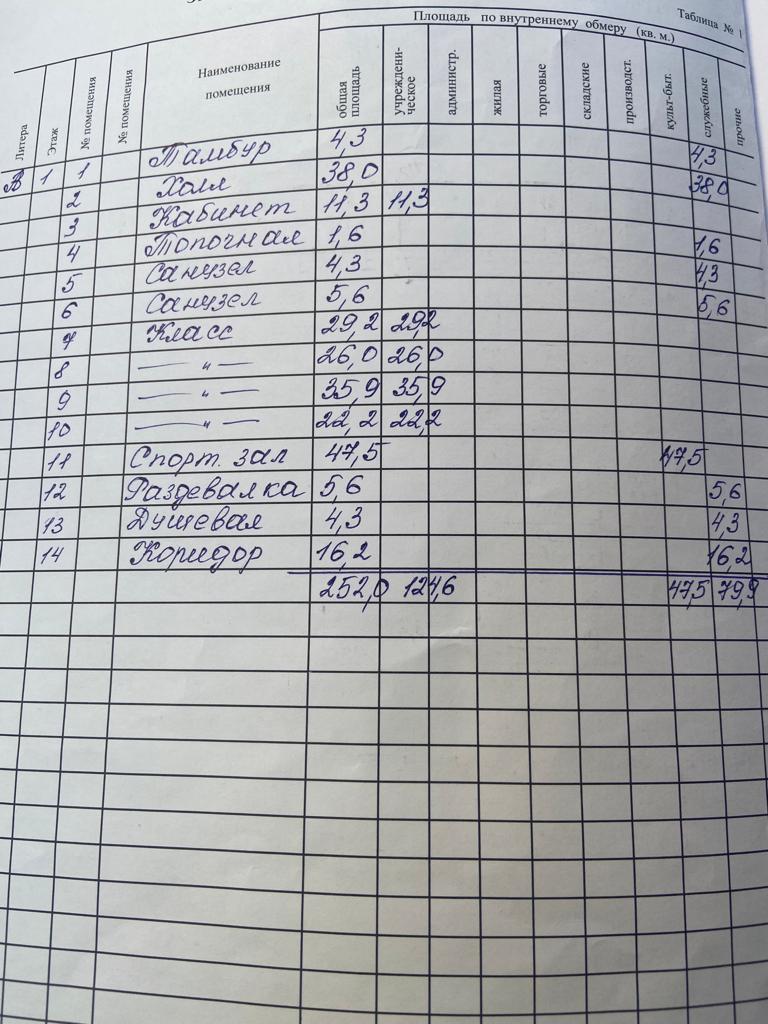 Таблица № 1
Площадь по внутреннему обмеру (кв. м.)
Литера Этаж № помещения № помещения Наименование помещения общая площадь учреждени-ческое администр. жилая торговые складские производст. культ-быт. служебные прочие
А 1 1 Тамбур 4,3 4,3
2 Холл 38,0 38,0
3 Кабинет 11,3 11,3
4 Топочная 1,6 1,6
5 Санузел 4,3 4,3
6 Санузел 5,6 5,6
7 Класс 29,2 29,2
8 — " — 26,0 26,0
9 — " — 35,9 35,9
10 — " — 22,2 22,2
11 Спорт. зал 47,5 47,5
12 Раздевалка 5,6 5,6
13 Душевая 4,3 4,3
14 Коридор 16,2 16,2
252,0 124,6 47,5 79,9